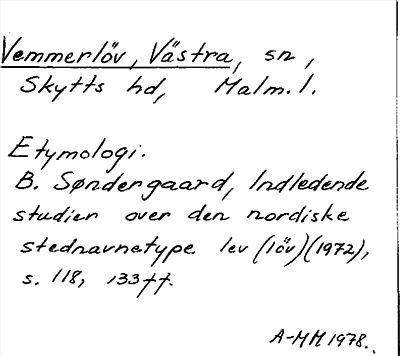 Vemmerlöv, Västra, sn,
Skytts hd, Malm. l.
Etymologi.
B. Søndergaard, Indledende
studier over den nordiske
stednavnetype lev (löv) (1972),
s. 118, 133ff.
A-MM 1978.